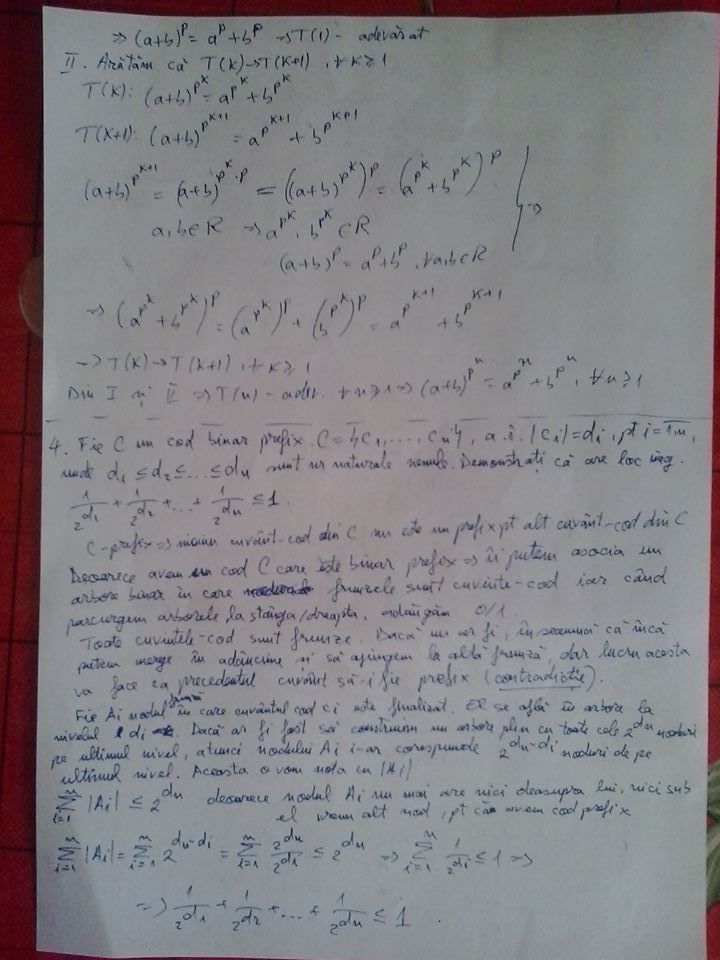 ⇒ (a+b)^p = a^p + b^p → T(1) - adevărat
II. Arătăm că T(k) → T(k+1), ∀ k ≥ 1
T(k): (a+b)^{p^k} = a^{p^k} + b^{p^k}
T(k+1): (a+b)^{p^{k+1}} = a^{p^{k+1}} + b^{p^{k+1}}
(a+b)^{p^{k+1}} = (a+b)^{p^k · p} = ((a+b)^{p^k})^p = (a^{p^k} + b^{p^k})^p
a, b ∈ R ⇒ a^{p^k}, b^{p^k} ∈ R
(a+b)^p = a^p + b^p, ∀ a,b ∈ R
⇒ (a^{p^k} + b^{p^k})^p = (a^{p^k})^p + (b^{p^k})^p = a^{p^{k+1}} + b^{p^{k+1}}
→ T(k) → T(k+1), ∀ k ≥ 1
Din I și II ⇒ T(n) - adev. ∀ n ≥ 1 ⇒ (a+b)^{p^n} = a^{p^n} + b^{p^n}, ∀ n ≥ 1
4. Fie C un cod binar prefix. C = {c1, ..., cn}, a.î. |ci| = di, pt i = 1,n,
unde d1 ≤ d2 ≤ ... ≤ dn sunt nr naturale nenule. Demonstrați că are loc ineg.
1/2^{d1} + 1/2^{d2} + ... + 1/2^{dn} ≤ 1.
C - prefix ⇒ niciun cuvânt-cod din C nu este un prefix pt alt cuvânt-cod din C
Deoarece avem un cod C care este binar prefix ⇒ îi putem asocia un
arbore binar în care frunzele sunt cuvinte-cod iar când
parcurgem arborele la stânga/dreapta, adăugăm 0/1.
Toate cuvintele-cod sunt frunze. Dacă nu ar fi, înseamnă că încă
putem merge în adâncime și să ajungem la altă frunză, dar lucru acesta
va face ca precedentul cuvânt să-i fie prefix (contradicție).
Fie Ai nodul frunză în care cuvântul cod ci este finalizat. El se află în arbore la
nivelul di. Dacă ar fi fost să construim un arbore plin cu toate cele 2^{dn} noduri
pe ultimul nivel, atunci nodului Ai i-ar corespunde 2^{dn-di} noduri de pe
ultimul nivel. Aceasta o vom nota cu |Ai|
∑_{i=1}^{n} |Ai| ≤ 2^{dn} deoarece nodul Ai nu mai are nici deasupra lui, nici sub
el vreun alt nod, pt că avem cod prefix
∑_{i=1}^{n} |Ai| = ∑_{i=1}^{n} 2^{dn-di} = ∑_{i=1}^{n} 2^{dn}/2^{di} ≤ 2^{dn} ⇒ ∑_{i=1}^{n} 1/2^{di} ≤ 1 ⇒
⇒ 1/2^{d1} + 1/2^{d2} + ... + 1/2^{dn} ≤ 1.